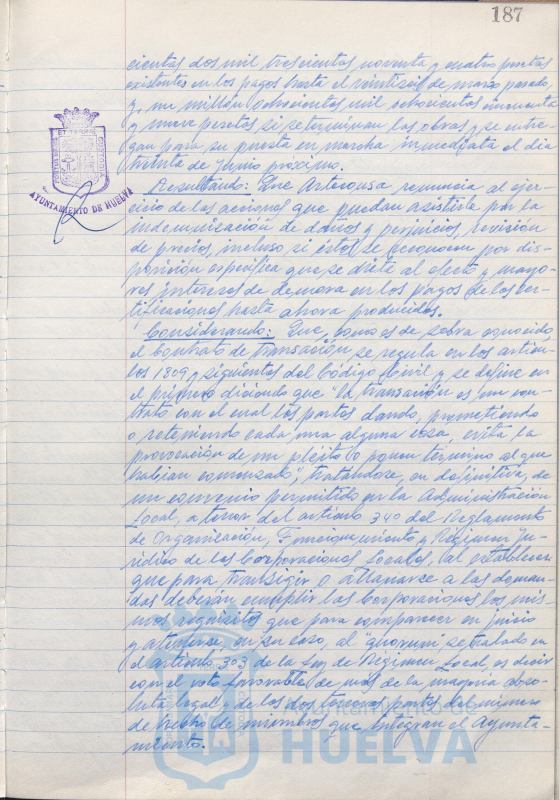 187
cientas dos mil trescientas noventa y cuatro pesetas
existentes en los pagos hasta el veintiseis de marzo pasado
y, un millón ochocientas mil ochocientas cincuenta
y nueve pesetas si se terminan las obras y se entre-
gan para su puesta en marcha inmediata el dia
treinta de Junio próximo.
Resultando: Que renuncia al ejer-
cicio de las acciones que puedan asistirla por la
indemnización de daños y perjuicios, revisión
de precios, incluso, si éstos se reconocen por dis-
posición específica que se dicte al efecto y mayo-
res intereses de demora en los pagos de las cer-
tificaciones hasta ahora producidas.
Considerando: Que, como es de sobra conocido,
el contrato de transacción se regula en los artícu-
los 1809 y siguientes del Código Civil y se define en
el primero diciendo que "la transación es un con-
trato con el cual las partes dando, prometiendo
o reteniendo cada una alguna cosa, evita la
provocación de un pleito o ponen termino al que
habian comenzado", tratandose, en definitiva, de
un convenio permitido en la Administración
Local, a tenor del artículo 340 del Reglamento
de Organización, Funcionamiento y Régimen Ju-
rídico de las Corporaciones Locales, al establecer
que para transigir o allanarse a las deman-
das deberán cumplir las Corporaciones los mis-
mos requisitos que para comparecer en juicio
y atenerse, en su caso, al "quorum" señalado en
el artículo 303 de la Ley de Régimen Local, es decir
con el voto favorable de más de la mayoria abso-
luta legal y de los dos terceras partes del número
de hecho de miembros que integran el Ayunta-
miento.
AYUNTAMIENTO DE HUELVA
HUELVA